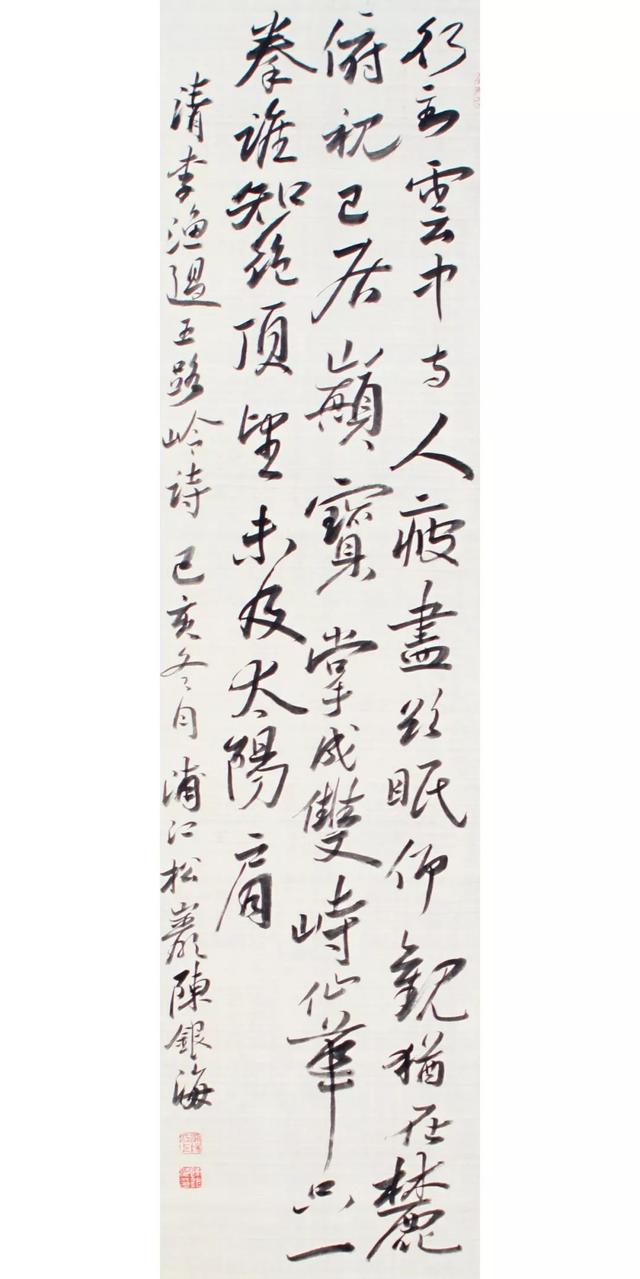 行到雲中寺人疲盡欲眠仰觀猶在麓
俯視已居巔寶掌成雙峙仙華只一
拳誰知絕頂望未及太陽肩
清李漁過五路岭詩 己亥冬月 浦江松巖陳銀海